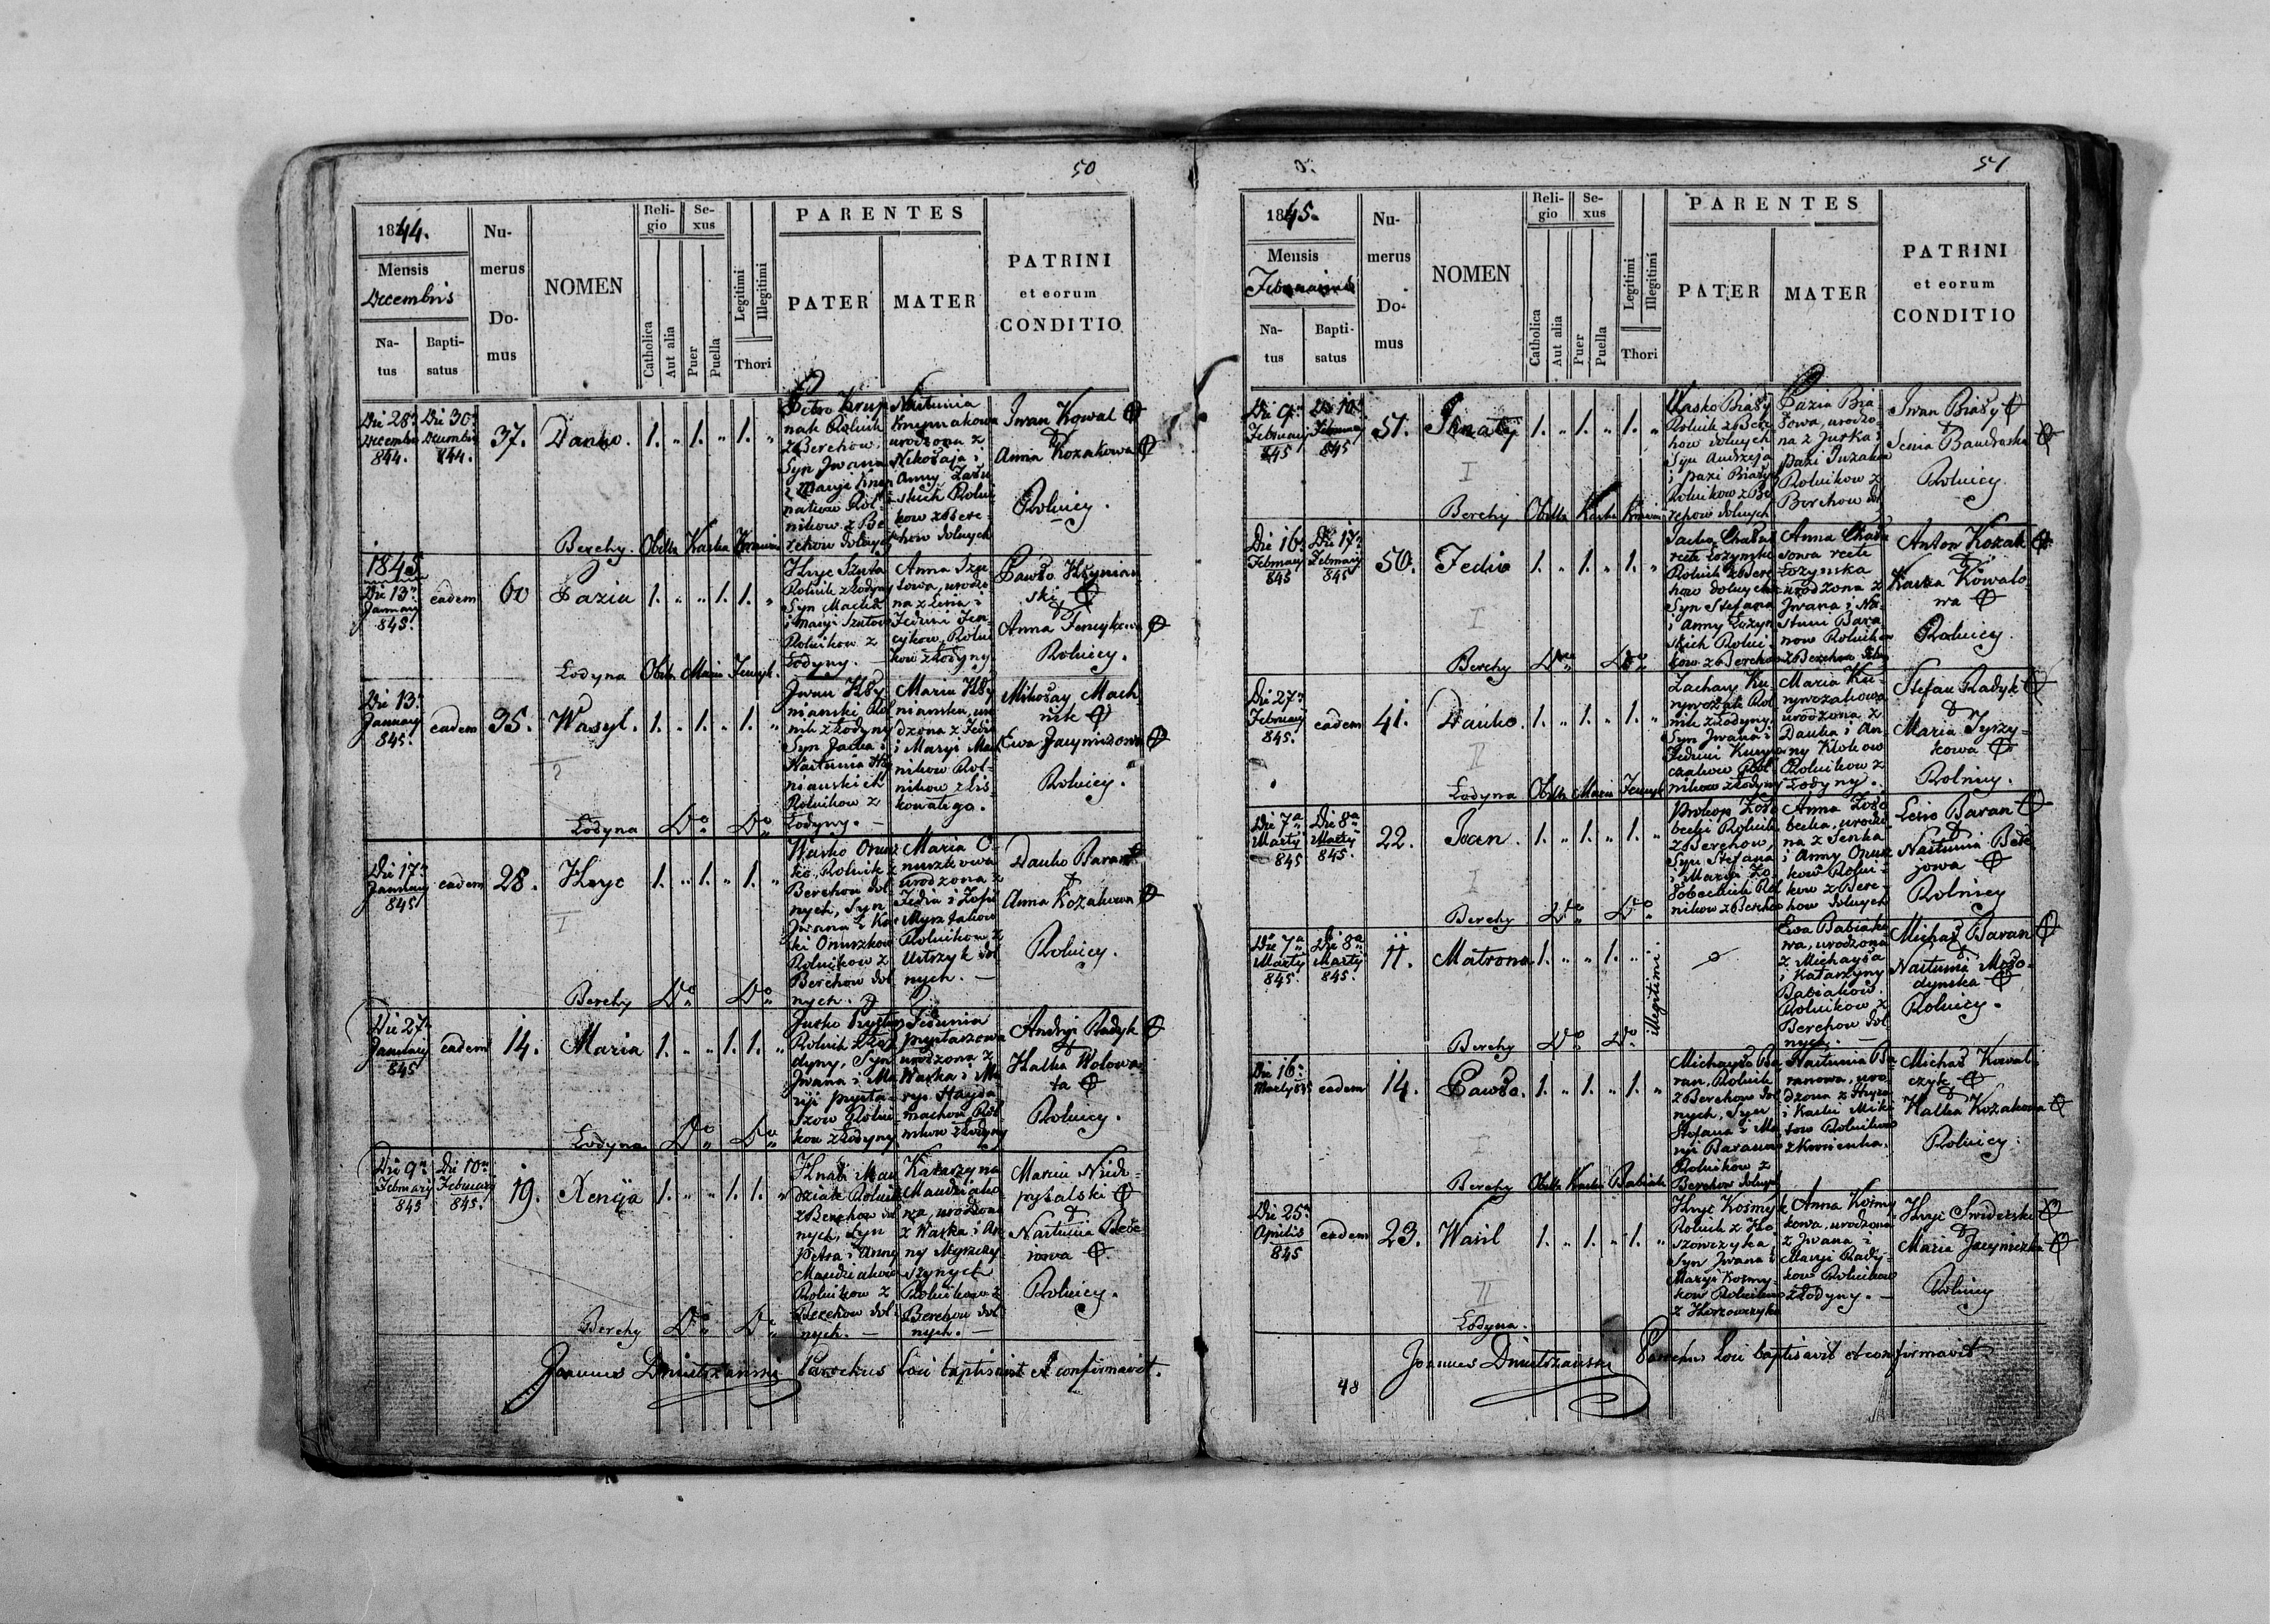 50
1844.
Mensis
Decembris
Na-
tus
Bapti-
satus
Nu-
merus
Do-
mus
NOMEN
Reli-
gio
Catholica
Aut alia
Se-
xus
Puer
Puella
Legitimi
Illegitimi
Thori
PARENTES
PATER
MATER
PATRINI
et eorum
CONDITIO
Die 28a
Decembr
844.
Die 30a
Decembr
844.
37.
Danko.
1. „ 1. „ 1. „
Petro Krup
nak Rolnik
z Berehow,
Syn Jwana
nikow z Be
rehow dolnych
Nastunia
urodzona z
Mikołaja i
Anny
skich Rolni
kow z Bere-
how dolnych
Iwan Kowal
&
Anna Kozakowa
Rolnicy.
Berehy. Obstx Kaska
1845
Die 13a
January
845.
eadem
60
Pazia
1. „ „ 1. 1. „
Hryc Szuta
Rolnik z Łodyny
Syn
i Maryi Szutow
Rolnikow z
Łodyny. —
Anna Szu
towa, urodzo
na z Lesia i
Feduni Fen-
cykow, Rolni
kow z Łodyny
Pawło Kłynian
ski
&
Anna Fencykowa
Rolnicy.
Łodyna Obstx Maria Fencyk.
Die 13a
January
845.
eadem
35.
Wasyl.
1. „ 1. „ 1. „
Jwan Kły
nianski Rol
nik z Łodyny
Syn Jacka i
Nastunia Kły
nianskich
Rolnikow z
Łodyny. —
Maria Kły
nianska, uro
dzona z Fedia
i Maryi Mach
nikow Rol-
nikow z Lis-
kowatego.
Mikołay Mach
nik
Ewa Jacyniczowa
Rolnicy.
Łodyna Do „ Do „
Die 17a
January
845
eadem
28.
Hryc
1. „ 1. „ 1. „
Wasko Onusz
ko, Rolnik z
Berehow dol
nych, Syn
Jwana i Ka
ski Onuszkow
Rolnikow z
Berehow dol
nych.
Maria O-
nuszkowa
urodzona z
Fedia i Zofii
Rolnikow z
Ustrzyk dol
nych. —
Danko Baran
&
Anna Kozakowa
Rolnicy.
Berehy Do „ Do „
Die 27a
January
845
eadem
14.
Maria
1. „ „ 1. 1. „
Jurko Prystasz
Rolnik z Ło
dyny, Syn
Jwana i Ma
ryi Prysta-
szow Rolni
kow z Łodyny
Fedunia
Prystaszowa
urodzona z
Waska i Ma
ryi Hayda-
machow Rol
nikow z Łodyny
Andryi Radyk
&
Halka Wolowa-
ta
Rolnicy.
Łodyna Do „ Do „
Die 9a
February
845
Die 10a
February
845.
19.
Xenija
1. „ „ 1. 1. „
Hnat Man
dziak Rolnik
z Berehow dol
nych, Syn
Petra i Anny
Mandziakow
Rolnikow z
Berehow dol
nych. —
Katarzyna
Mandziako
wa, urodzona
z Waska i An
ny
Rolnikow z
Berehow dol
nych. —
Marcin Niedo-
pytalski
&
Nastunia Bele-
nowa
Rolnicy.
Berehy Do „ Do „
Joannes Dmitrzanski Parochus Loci baptisavit et confirmavit.
51
1845.
Mensis
Februarius
Na-
tus
Bapti-
satus
Nu-
merus
Do-
mus
NOMEN
Reli-
gio
Catholica
Aut alia
Se-
xus
Puer
Puella
Legitimi
Illegitimi
Thori
PARENTES
PATER
MATER
PATRINI
et eorum
CONDITIO
Die 9a
February
845
Die 10a
February
845
51.
Jhnatij
1. „ 1. „ 1. „
Wasko Biały
Rolnik z Bere
how dolnych
Syn Andrzeja
i Pazi Białych
Rolnikow z Be
rehow dolnych
Pazia Bia
łowa, urodzo-
na z Jurka i
Pazi
Rolnikow z
Berehow dol
Iwan Biały
&
Senia Bandroska
Rolnicy.
I
Berehy Obstx Kaska
Die 16a
February
845
Die 17a
February
845
50.
Fedio
1. „ 1. „ 1. „
recte Łozynski
Rolnik z Bere
how dolnych
Syn Stefana
i Anny Łozyn
skich Rolni-
kow z Berehow
Anna
sowa recte
Łozynska
urodzona z
Jwana i Na-
stuni Bara
now Rolnikow
z Berehow dolny
Anton Kozak
&
Kaska Kowalo
wa
Rolnicy.
I
Berehy Do „ Do „
Die 27a
February
845.
eadem
41.
Danko.
1. „ 1. „ 1. „
Zachary
Rolnik
z Łodyny,
Syn Jwana i
Feduni
nikow z Łodyny
Maria
urodzona z
Danka i An-
ny
Rolnikow z
Łodyny.
Stefan Radyk
&
Maria
kowa
Rolnicy.
II
Łodyna Obstx Maria Fencyk
Die 7a
Marty
845
Die 8a
Marty
845.
22.
Joan.
1. „ 1. „ 1. „
Prokop Zoło
becki Rolnik
z Berehow,
Syn Stefana
i Maryi Zo-
łobeckich Rol
nikow z Bereho
Anna Zoło
becka, urodzo
na z Senka
i Anny Onusz
kow Rolni-
kow z Bere-
how dolnych
Lesio Baran
&
Nastunia Bele
Rolnicy
I
Berehy Do „ Do „
Die 7a
Marty
845.
Die 8a
Marty
845.
11.
Matrona
1. „ „ 1. „
illegitimi.
Ewa Babiako
wa, urodzona
z Michayła
i Katarzyny
Babiakow.
Rolnikow z
Berehow dol
nych. —
Michał Baran
&
Nastunia Moło-
dynska
Rolnicy.
Berehy Do „ Do „
Die 16a
Marty 845
eadem
14.
Pawło.
1. „ 1. „ 1. „
Michayło Ba
ran, Rolnik
z Berehow dol
nych, Syn
Stefana i Ma
ryi Baranow
Rolnikow z
Berehow dolnych
Nastunia Ba
ranowa, uro
dzona z Hryca
i Kaski Miki
tow Rolnikow
Michał Kowal-
czyk
&
Halka Kozakowa
Rolnicy.
I
Berehy Obstx Kaska Babiak
Die 25a
Aprilis
845
eadem
23.
Wasil
1. „ 1. „ 1. „
Hryc Kosmyk
Rolnik z Ho
szowczyka
Syn Jwana i
Maryi Kosmy-
kow Rolnikow
z Hoszowczyka
Anna Kosmy
kowa, urodzona
z Jwana i
Maryi Rady-
kow Rolnikow
z Łodyny. —
Hryc Swiderski
&
Maria Jacyniczka
Rolnicy
II
Łodyna.
Joannes Dmitrzanski Parochus Loci baptisavit et confirmavit
48